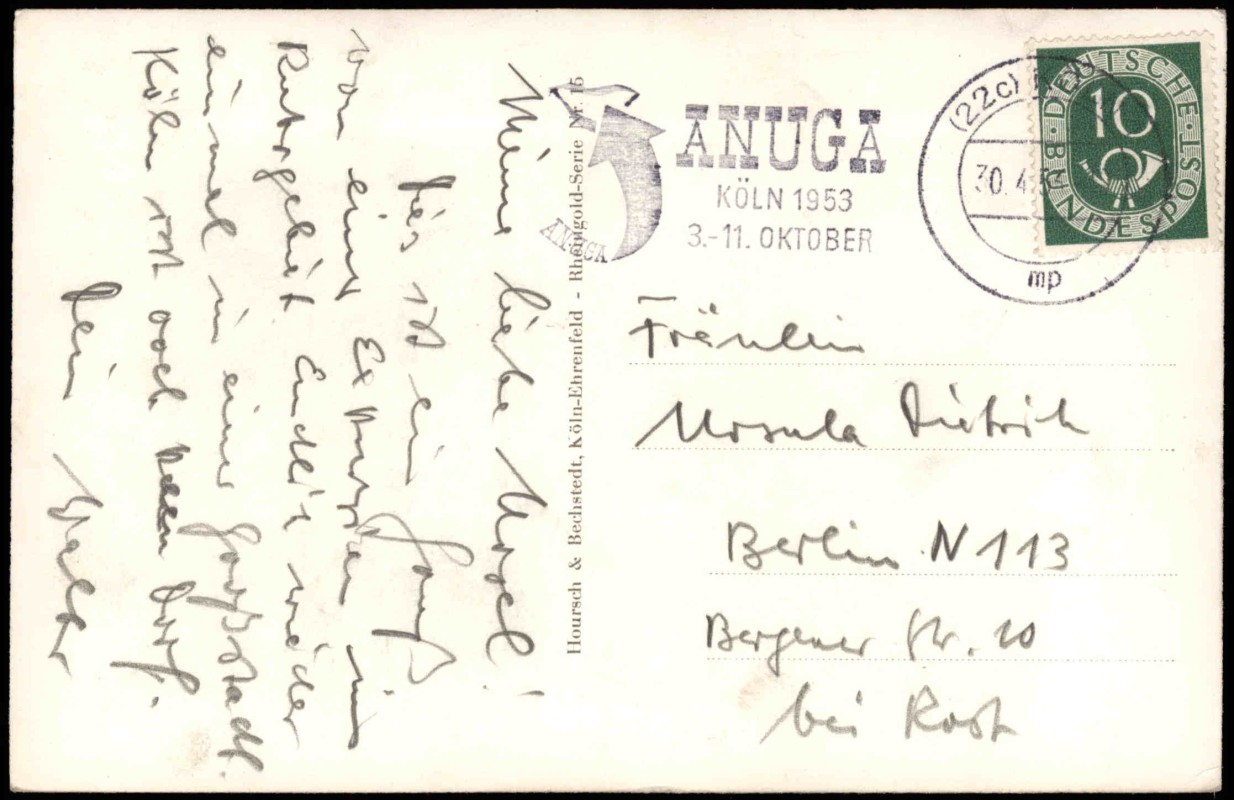 Meine liebe Ursel!
Dies ist ein Gruß
von einer Exkursion ins
Ruhrgebiet. Endlich wieder
einmal in einer Großstadt.
Köln ist doch kein Dorf.
Dein Walter
Hoursch & Bechstedt, Köln-Ehrenfeld - Rheingold-Serie Nr. 15
ANUGA
ANUGA
KÖLN 1953
3.-11. OKTOBER
(22c)
30.4.
mp
DEUTSCHE BUNDESPOST
10
Fräulein
Ursula Dietrich
Berlin N 113
Bergener Str. 10
bei Rost